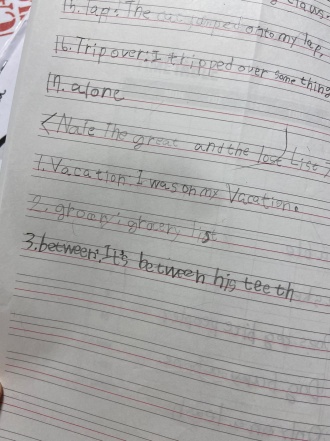 claws.
15. lap: The cat jumped onto my lap,
16. Trip over: I tripped over some thing
17. alone
<Nate The great and the lost List>
1. Vacation: I was on my Vacation.
2. gromp: grocery list
3. between: It's between his teeth